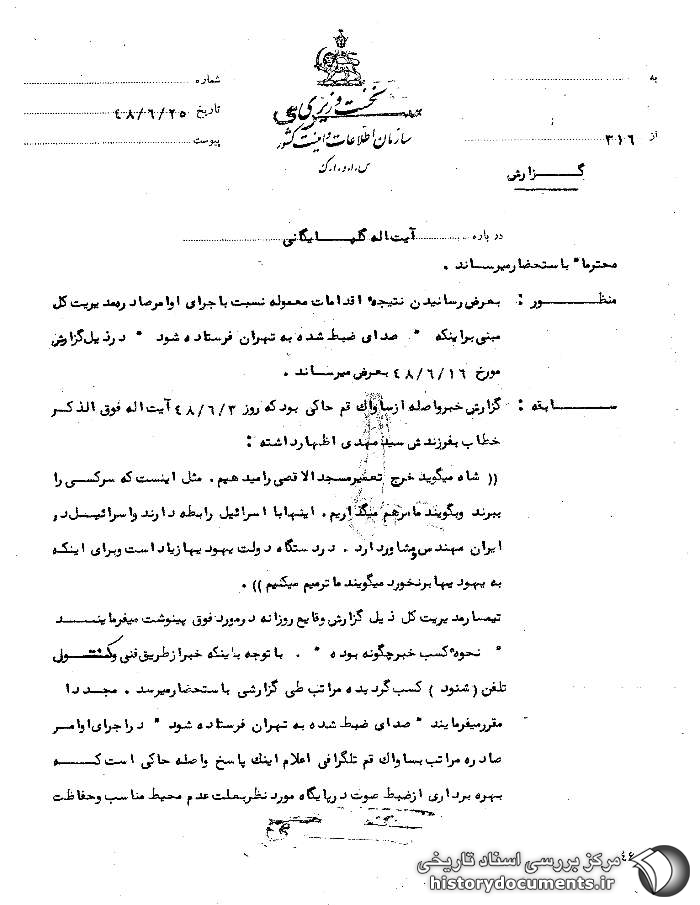 به
شماره
نخست وزیری
تاریخ ۴۸/۶/۲۵
سازمان اطلاعات و امنیت کشور
از ۳۱۶
پیوست
س.ا.و.ا.ک
گزارش
درباره آیت اله گلپایگانی
محترما" باستحضار میرساند .
منظور : بعرض رسانیدن نتیجه" اقدامات معموله نسبت باجرای اوامر صادره مدیریت کل
مبنی براینکه " صدای ضبط شده به تهران فرستاده شود " در ذیل گزارش
مورخ ۴۸/۶/۱۶ بعرض میرساند .
سابقه : گزارش خبر واصله از ساواک قم حاکی بود که روز ۴۸/۶/۳ آیت اله فوق الذکر
خطاب بفرزندش سید مهدی اظهار داشته :
(( شاه میگوید خرج تعمیر مسجد الاقصی را میدهیم . مثل اینست که سر کسی را
ببرند وبگویند ما مرهم میگذاریم . اینها با اسرائیل رابطه دارند واسرائیل در
ایران مهندس و مشاور دارد . در دستگاه دولت یهودیها زیاد است وبرای اینکه
به یهودیها برنخورد میگویند ما ترمیم میکنیم )) .
تیمسار مدیریت کل ذیل گزارش وقایع روزانه در مورد فوق پینوشت میفرمایند
" نحوه" کسب خبر چگونه بوده " . با توجه باینکه خبر از طریق فنی و کنترل
تلفن ( شنود ) کسب گردیده مراتب طی گزارشی باستحضار میرسد . مجددا
مقرر میفرمایند " صدای ضبط شده به تهران فرستاده شود " در اجرای اوامر
صادره مراتب بساواک قم تلگرافی اعلام اینک پاسخ واصله حاکی است که
بهره برداری از ضبط صوت در پایگاه مورد نظر بعلت عدم محیط مناسب وحفاظت
مرکز بررسی اسناد تاریخی
historydocuments.ir